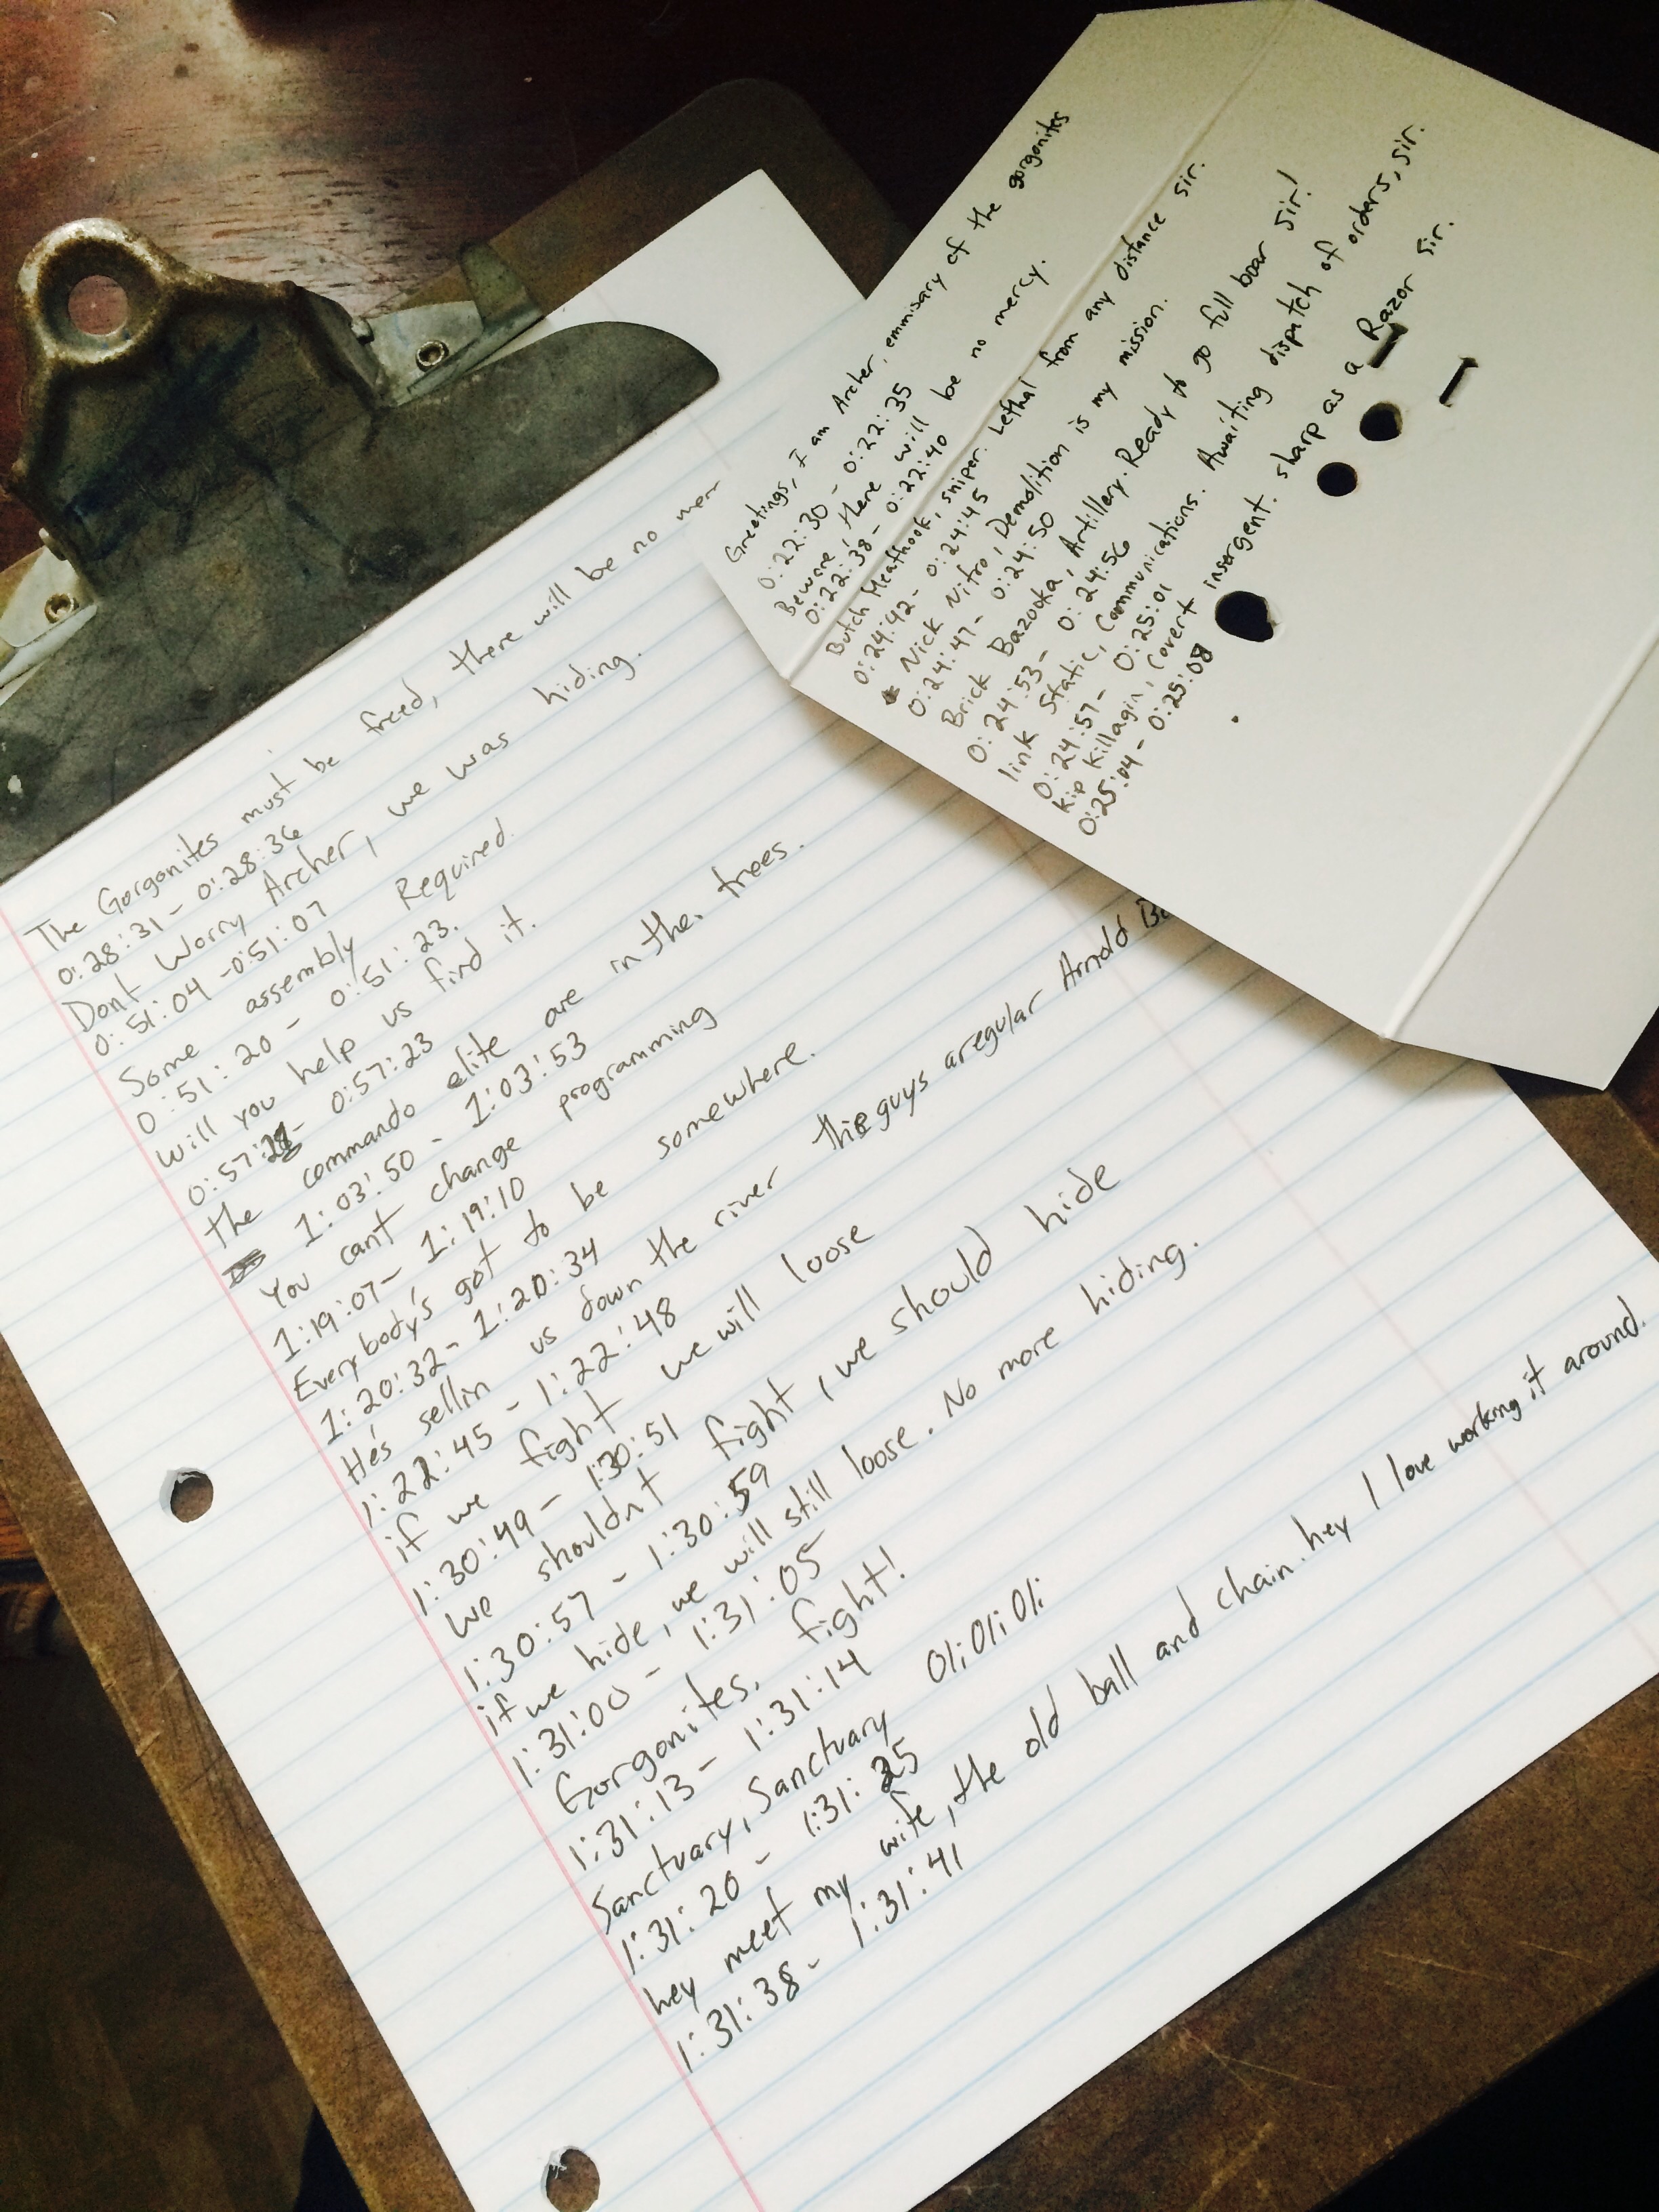 Greetings, I am Archer, emmisary of the gorgonites
0:22:30 - 0:22:35
Beware, there will be no mercy.
0:22:38 - 0:22:40
Butch Meathook, sniper. Lethal from any distance sir.
0:24:42 - 0:24:45
Nick Nitro, Demolition is my mission.
0:24:47 - 0:24:50
Brick Bazooka, Artillery. Ready to go full boar sir!
0:24:53 - 0:24:56
link Static, Communications. Awaiting dispatch of orders, sir.
0:24:57 - 0:25:01
Kip killagin, Covert insergent. sharp as a Razor sir.
0:25:04 - 0:25:08
The Gorgonites must be freed, there will be no
0:28:31 - 0:28:36
Dont Worry Archer, we was hiding.
0:51:04 - 0:51:07
Some assembly Required.
0:51:20 - 0:51:23.
Will you help us find it.
0:57: - 0:57:23
The commando elite are in the trees.
1:03:50 - 1:03:53
You can't change programming
1:19:07 - 1:19:10
Everybody's got to be somewhere.
1:20:32 - 1:20:34
He's sellin us down the river this guys aregular Arnold
1:22:45 - 1:22:48
if we fight we will loose
1:30:49 - 1:30:51
We shouldnt fight, we should hide
1:30:57 - 1:30:59
if we hide, we will still loose. No more hiding.
1:31:00 - 1:31:05
Gorgonites, fight!
1:31:13 - 1:31:14
Sanctuary, Sanctuary Oli Oli Oli
1:31:20 - 1:31:25
hey meet my wife, the old ball and chain. hey I love working it around.
1:31:38 - 1:31:41